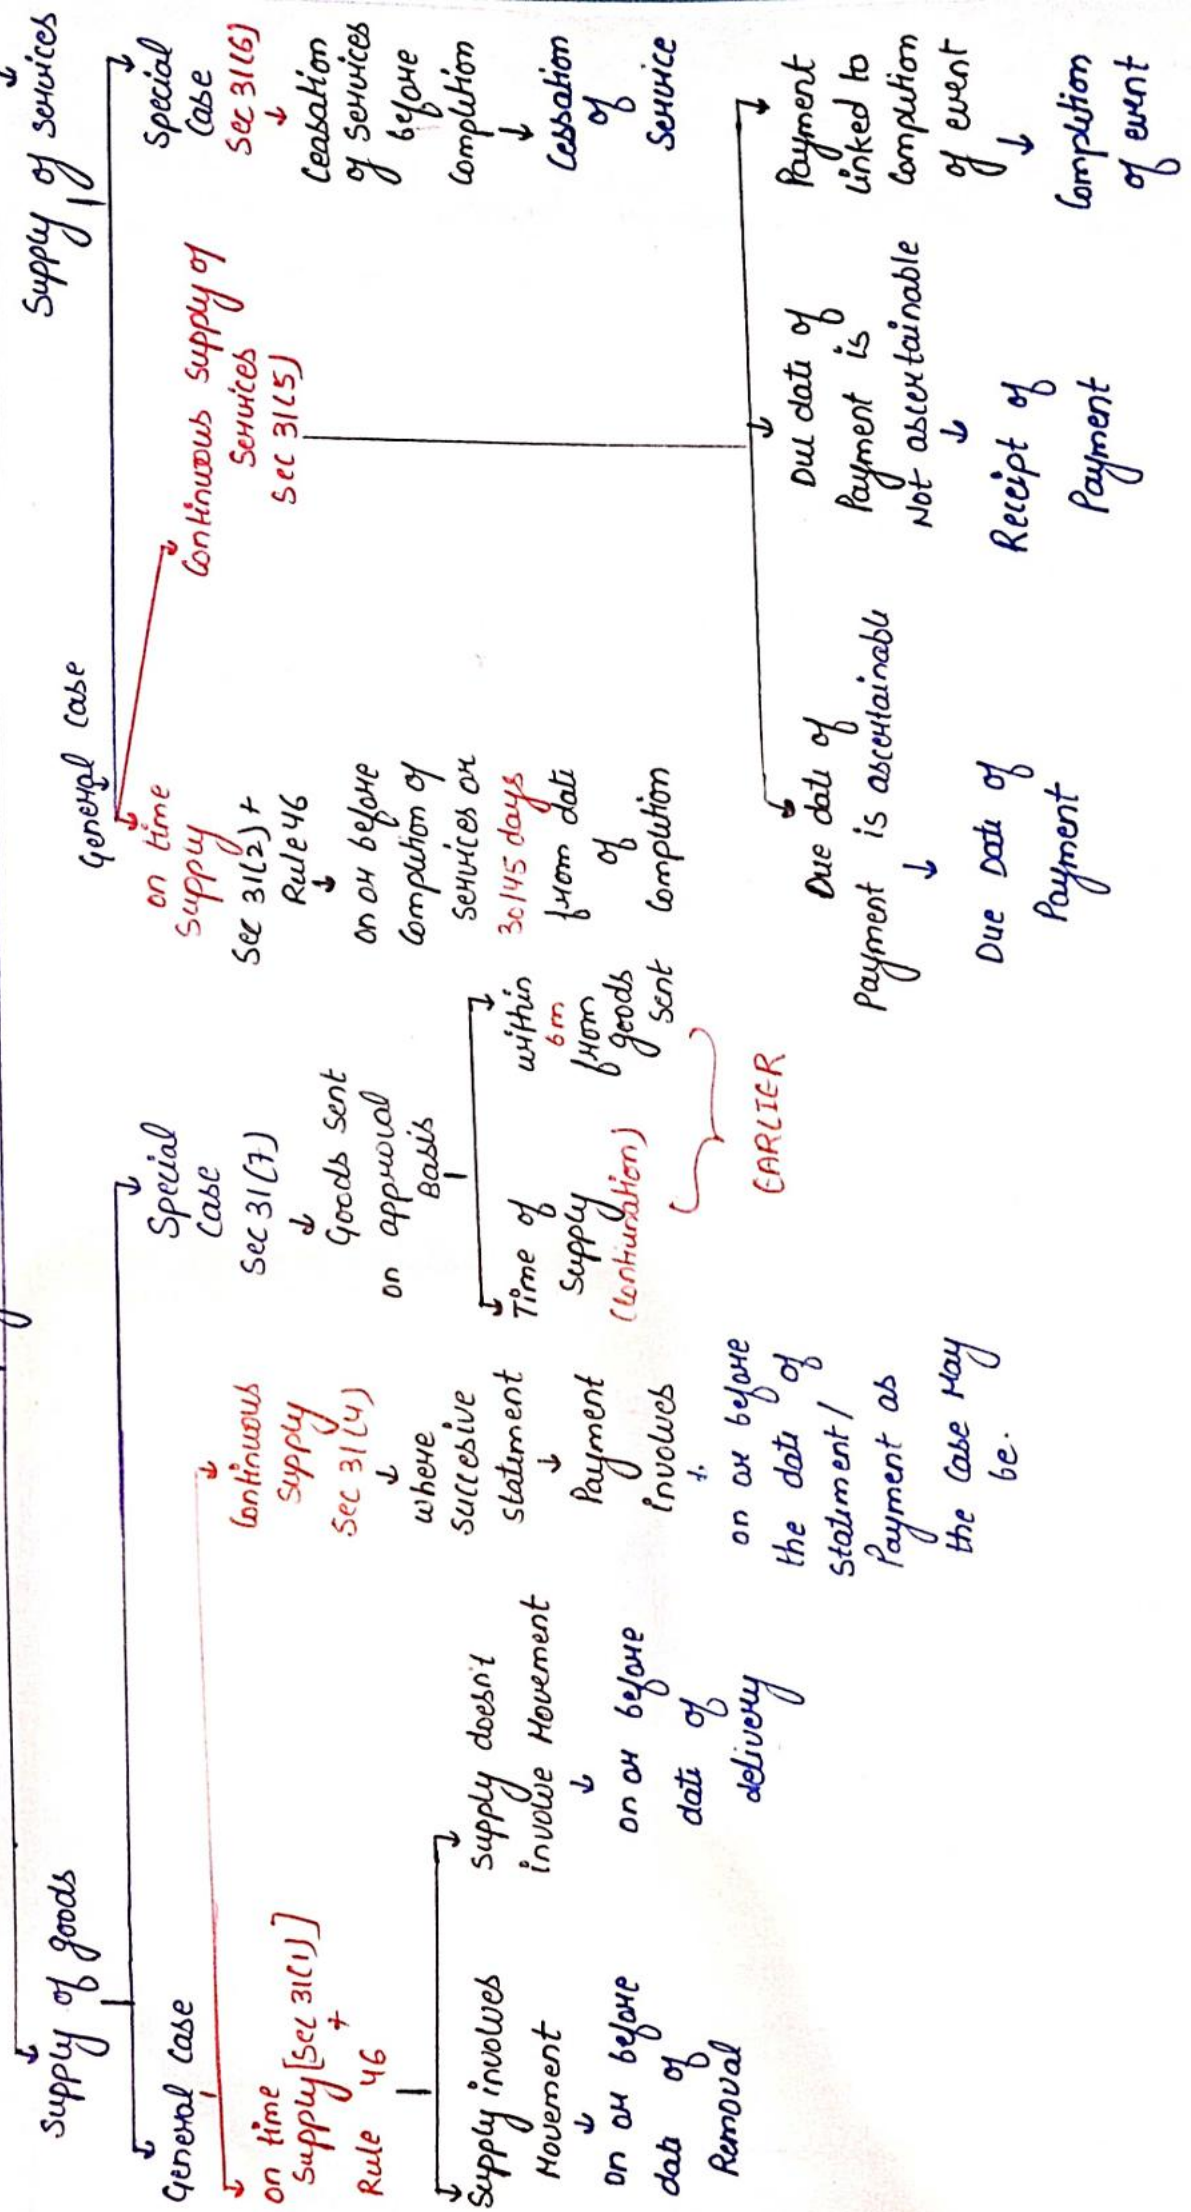 Supply of goods
General Case
on time
Supply [Sec 31(1)]
+
Rule 46
Supply involves
Movement
on or before
date of
Removal
Supply doesn't
involve Movement
on or before
date of
delivery
Continuous
Supply
Sec 31(4)
where
succesive
statement
Payment
involves
on or before
the date of
statement/
Payment as
the case may
be.
Special
Case
Sec 31(7)
Goods sent
on approval
Basis
Time of
Supply
within
6m
from
goods
sent
EARLIER
Supply of services
General Case
on time
Supply
Sec 31(2) +
Rule 46
on or before
Completion of
services or
30/45 days
from date
of
Completion
Continuous supply of
Services
Sec 31(5)
Due date of
Payment is ascertainable
Due Date of
Payment
Due date of
Payment is
Not ascertainable
Receipt of
Payment
Payment
linked to
Completion
of event
Completion
of event
Special
Case
Sec 31(6)
Ceasation
of services
before
Completion
Cessation
of
Service